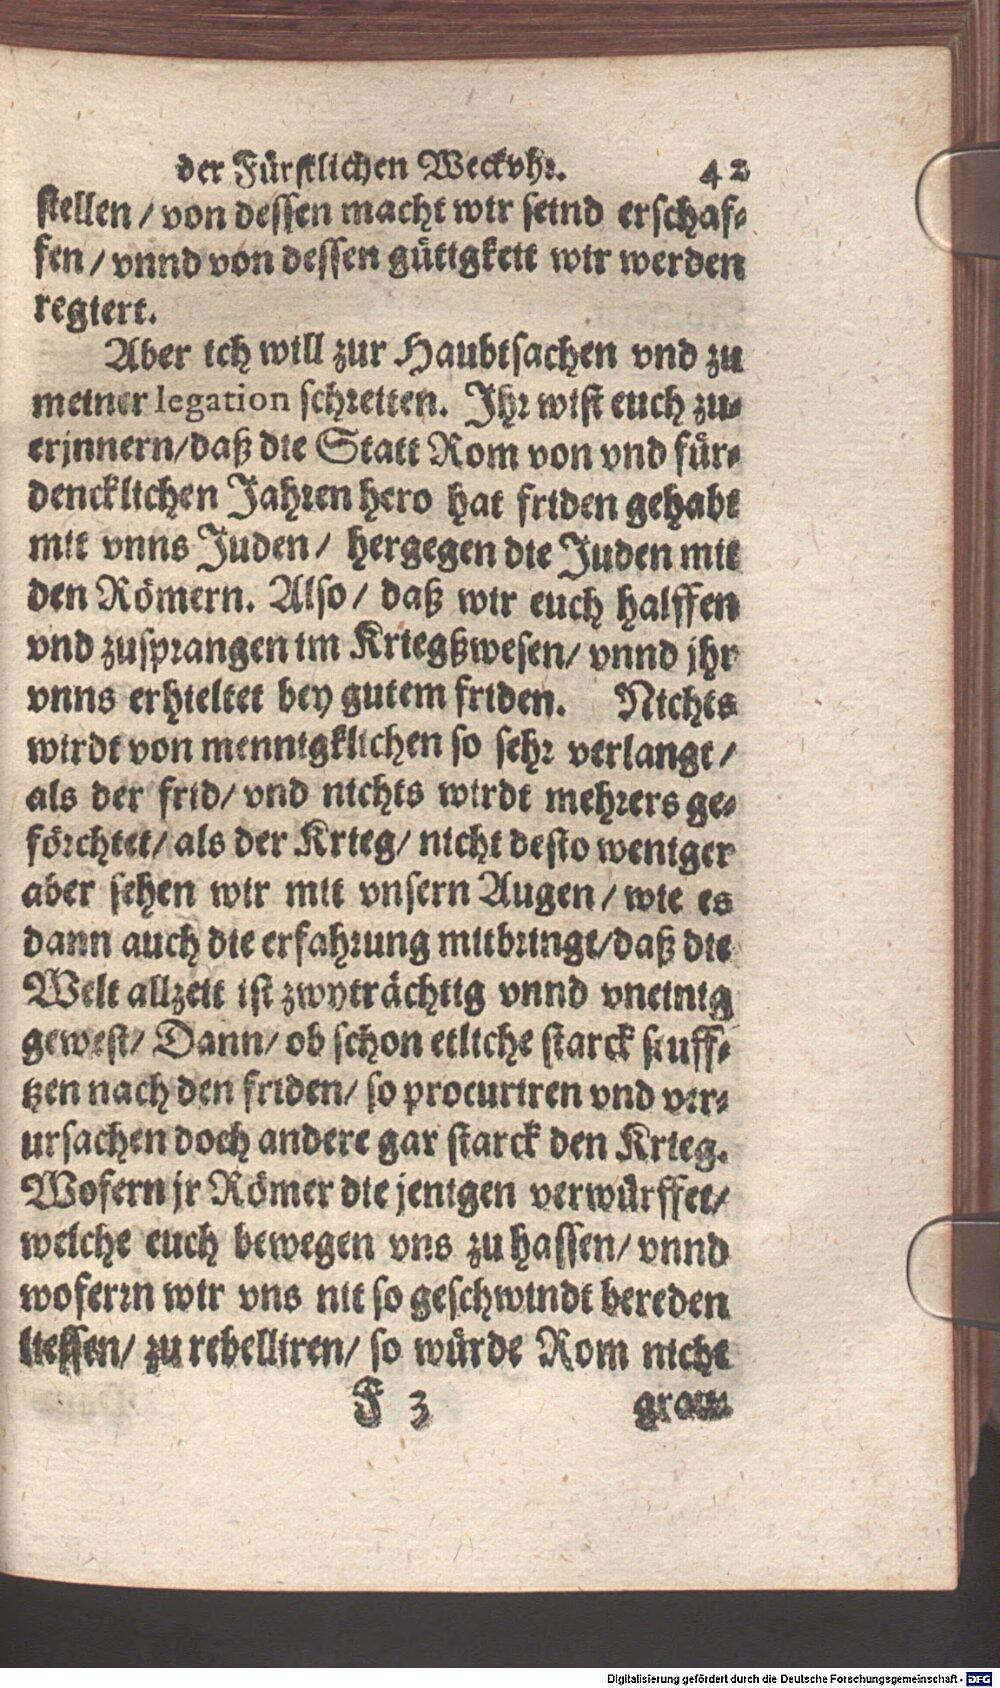 der Fürstlichen Weckvhr. 42
stellen / von dessen macht wir seind erschaf-
fen / vnnd von dessen güttgkeit wir werden
regiert.
Aber ich will zur Haubtsachen vnd zu
meiner legation schreiten. Ihr wist euch zu-
erjnnern/daß die Statt Rom von vnd für-
dencklichen Jahren hero hat friden gehabt
mit vnns Juden / hergegen die Juden mit
den Römern. Also / daß wir euch halffen
vnd zusprangen im Kriegßwesen/ vnnd jhr
vnns erhieltet bey gutem friden. Nichts
wirdt von mennigklichen so sehr verlangt /
als der frid/ vnd nichts wirdt mehrers ge-
förchtet/ als der Krieg/ nicht desto weniger
aber sehen wir mit vnsern Augen / wie es
dann auch die erfahrung mitbringt/daß die
Welt allzeit ist zwyträchtig vnnd vneinig
gewest/ Dann/ ob schon etliche starck seuff-
tzen nach den friden/ so procuriren vnd ver-
ursachen doch andere gar starck den Krieg.
Wofern jr Römer die jenigen verwürffet/
welche euch bewegen vns zu hassen/ vnnd
woferrn wir vns nit so geschwindt bereden
liessen/ zu rebelliren/ so würde Rom nicht
F 3
Digitalisierung gefördert durch die Deutsche Forschungsgemeinschaft - DFG